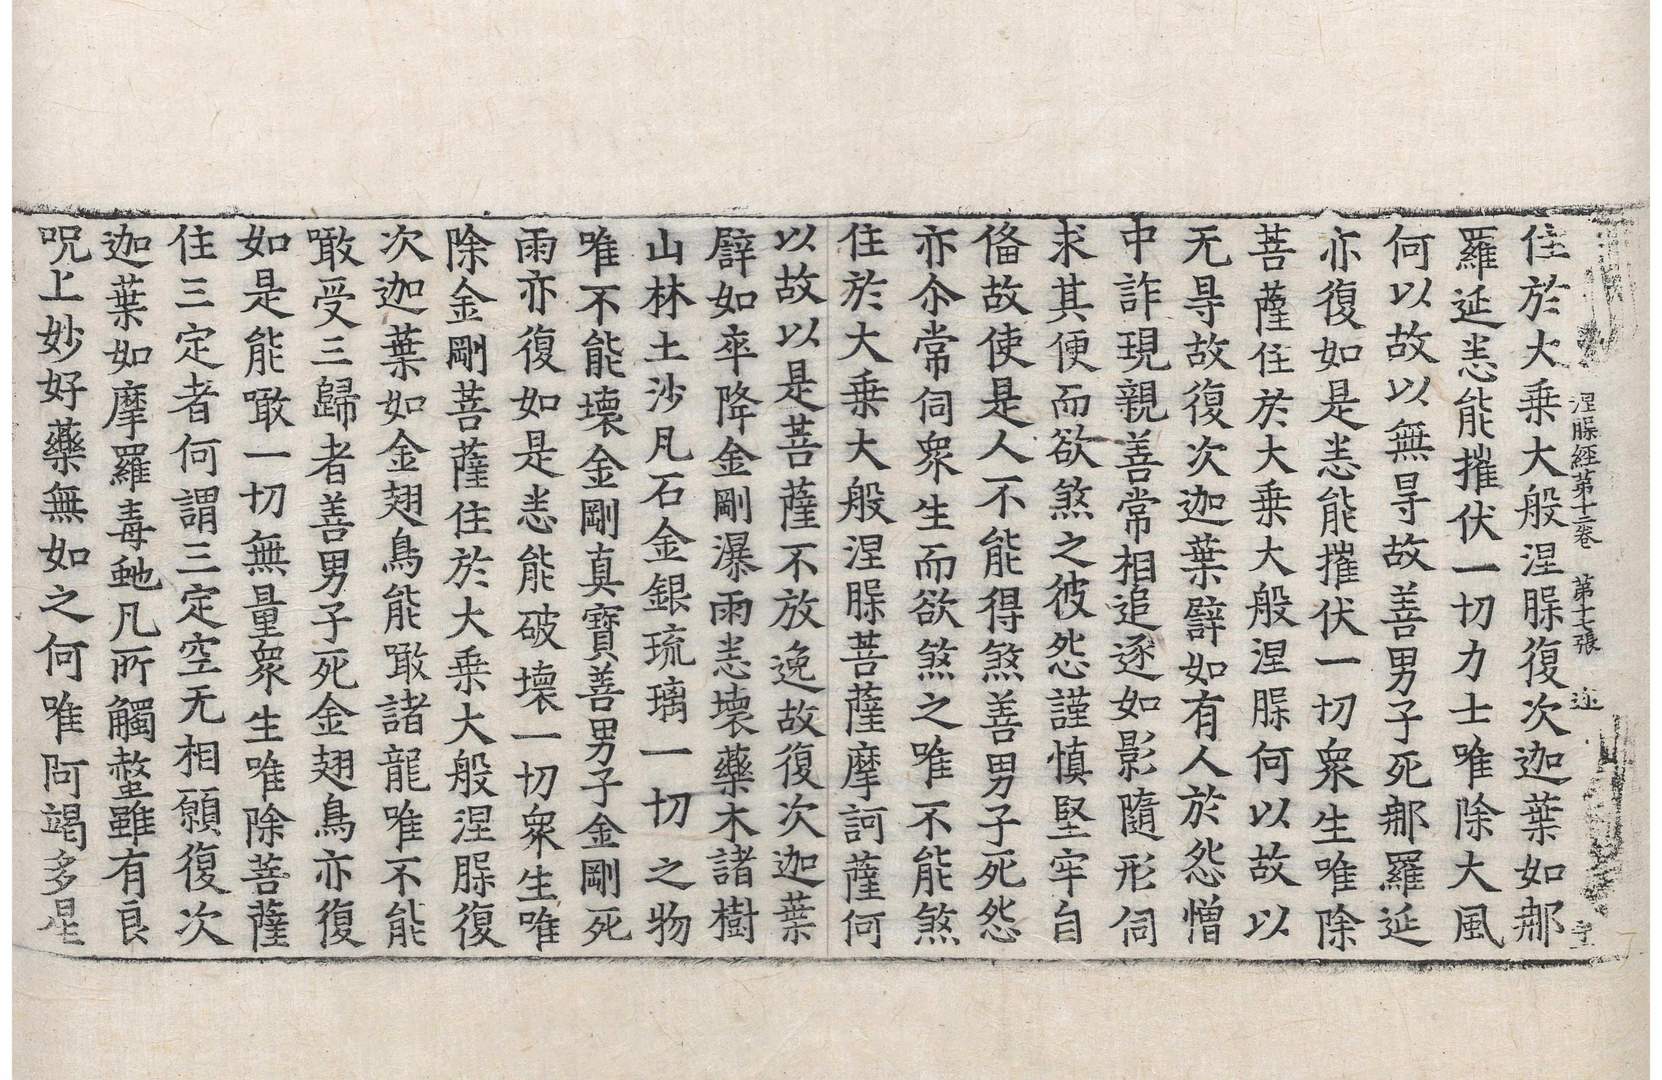 涅脲經第十二卷　第十七張　迩
住於大乗大般涅脲復次迦葉如郍
羅延恙能摧伏一切力士唯除大風
何以故以無㝵故善男子死郍羅延
亦復如是恙能摧伏一切衆生唯除
菩薩住於大乗大般涅脲何以故以
无㝵故復次迦葉譬如有人於怨憎
中詐現親善常相追逐如影隨形伺
求其便而欲煞之彼怨謹慎堅牢自
俻故使是人不能得煞善男子死怨
亦尒常伺衆生而欲煞之唯不能煞
住於大乗大般涅脲菩薩摩訶薩何
以故以是菩薩不放逸故復次迦葉
譬如卒降金剛瀑雨恙壊藥木諸樹
山林土沙凡石金銀琉璃一切之物
唯不能壊金剛真寳善男子金剛死
雨亦復如是恙能破壊一切衆生唯
除金剛菩薩住於大乗大般涅脲復
次迦葉如金翅鳥能噉諸龍唯不能
噉受三歸者善男子死金翅鳥亦復
如是能噉一切無量衆生唯除菩薩
住三定者何謂三定空无相願復次
迦葉如摩羅毒虵凡所觸螫雖有良
呪上妙好藥無如之何唯阿竭多星